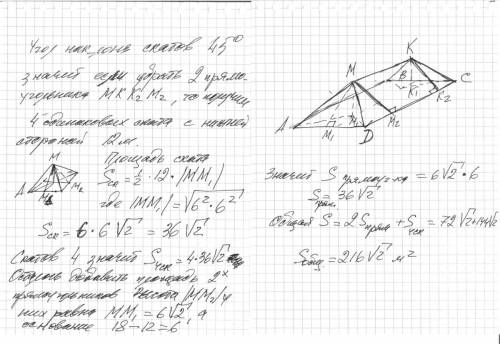 Угол наклона скатов 45°
значит если убрать 2 прямо-
угольника MKK₂M₂, то получим
4 одинаковых ската с нижней
стороной 12 м.
Площадь ската
Sск = 1/2 · 12 · |MM₁|
где |MM₁| = √6² · 6²
Sск = 6 · 6√2 = 36√2
Скатов 4 значит S4ск = 4·36√2
добавить площадь 2ˣ
прямоугольников высота |MM₂| у
них равна MM₁ = 6√2, а
основание 18 − 12 = 6
M
A
M₂
K
M
B
C
K₁
K₂
A
M₁
D
M₂
Значит S прямоуг-ка = 6√2 · 6
Sпрям. = 36√2
Общая S = 2Sпрям + S4ск = 72√2 + 144√2
Sобщ = 216√2 м²